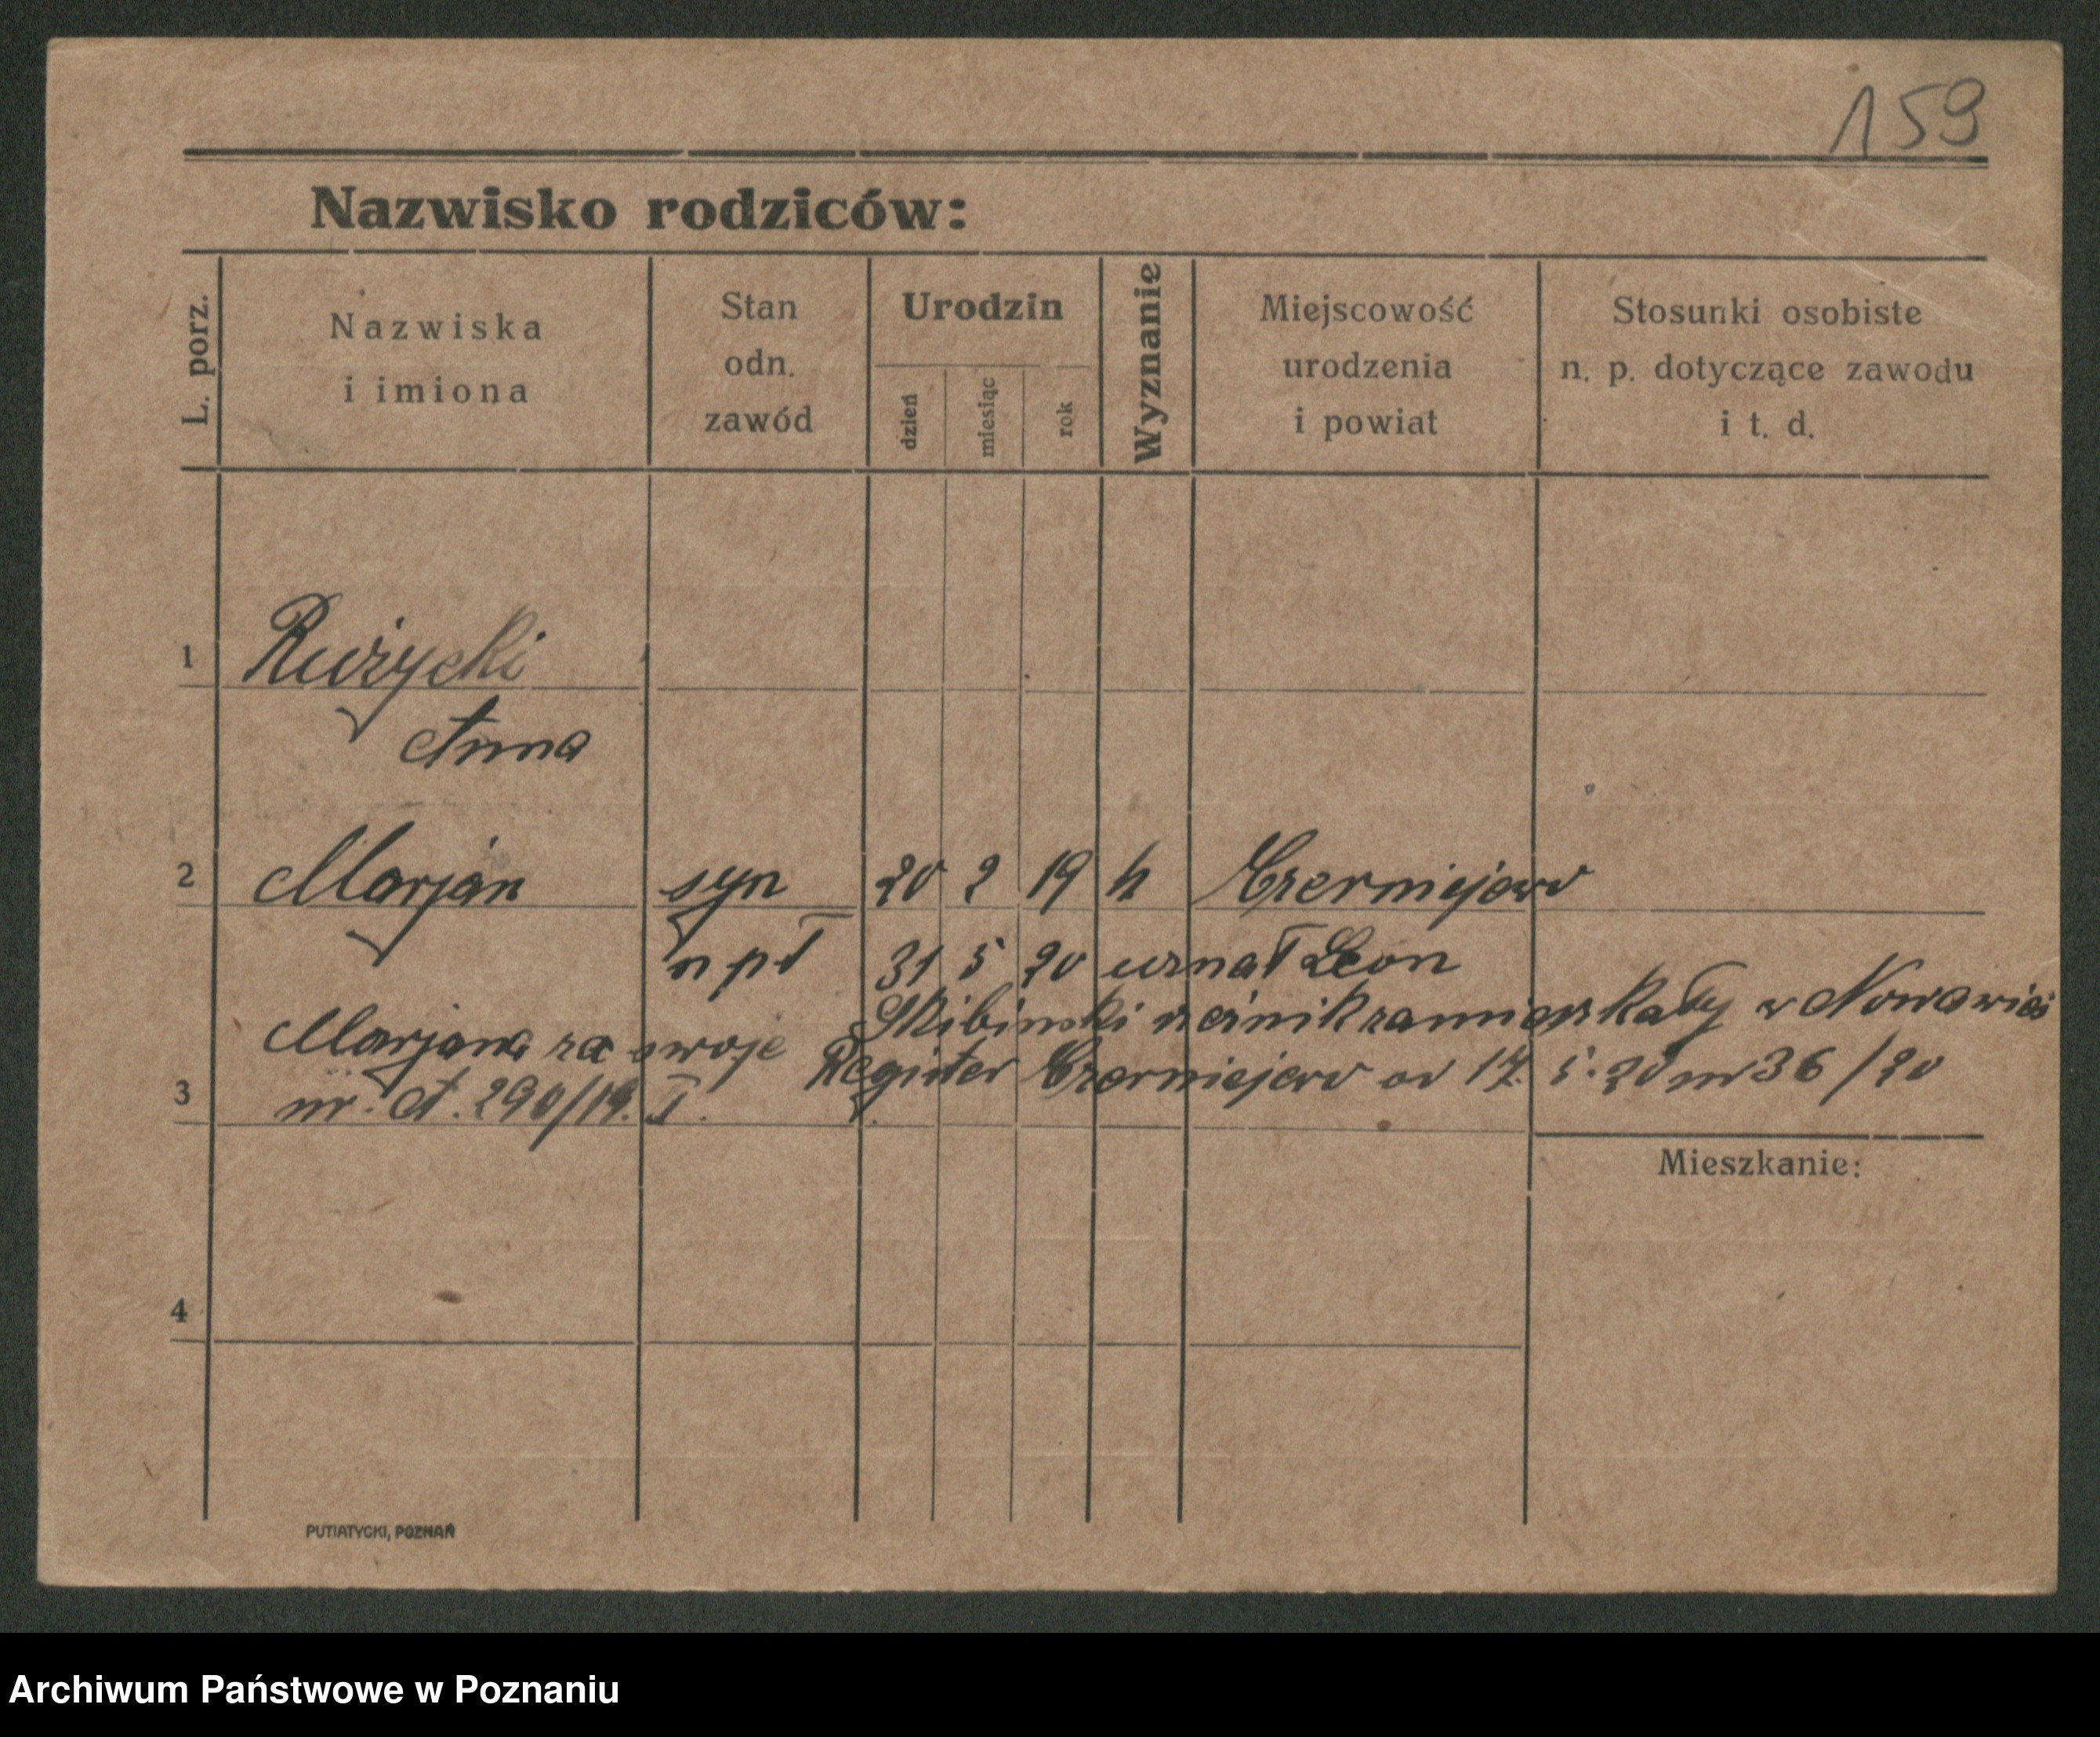 159
Nazwisko rodziców:
L. porz.
Nazwiska
i imiona
Stan
odn.
zawód
Urodzin
dzień
miesiąc
rok
Wyznanie
Miejscowość
urodzenia
i powiat
Stosunki osobiste
n. p. dotyczące zawodu
i t. d.
1 Rużycki
Anna
2 Marjan syn 20 2 19 k Czerniejewo
31 5 20 uznał Leon
Skibinski rzeźnik zamieszkały w Nowawieś
Marjana za swoje
Register Czerniejewo 17. 5. 20 nr 36/20
3 nr. A. 290/19. I.
Mieszkanie:
4
PUTIATYCKI, POZNAŃ
Archiwum Państwowe w Poznaniu